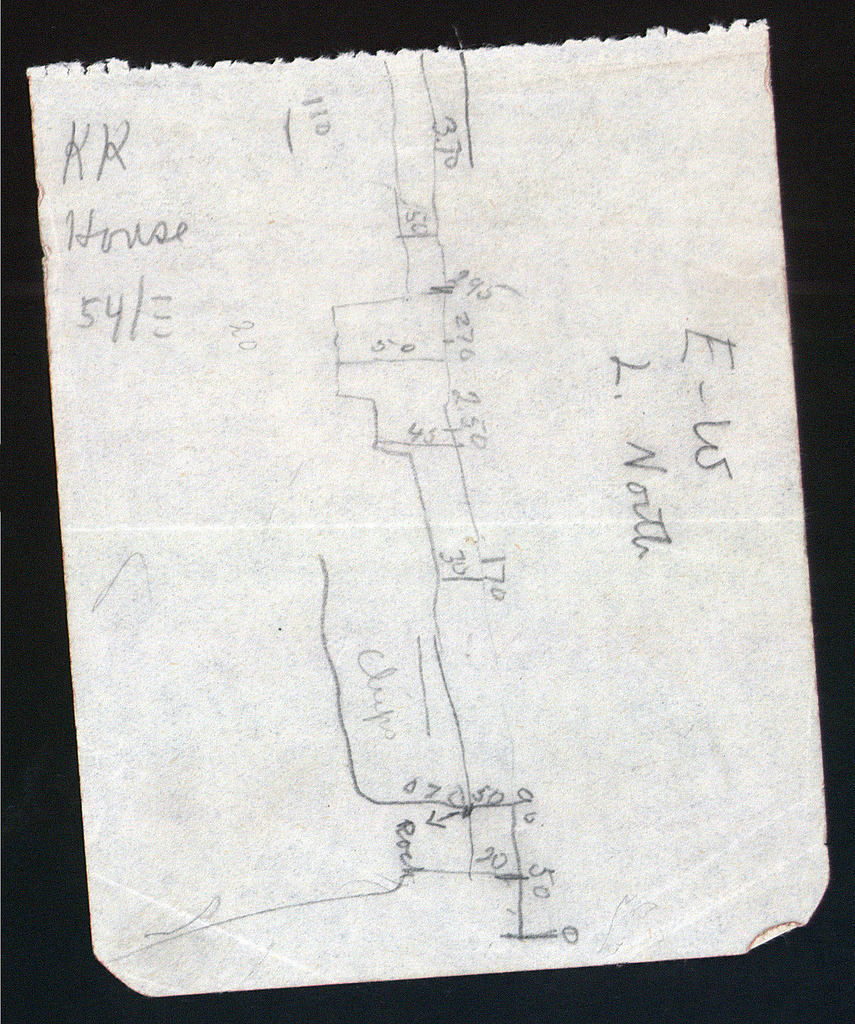 KR
House
54/Ξ
20
110
3.70
50
295
270
50
250
45
E-W
L. North
170
30
Chips
070
50
90
Rock
20
50
0